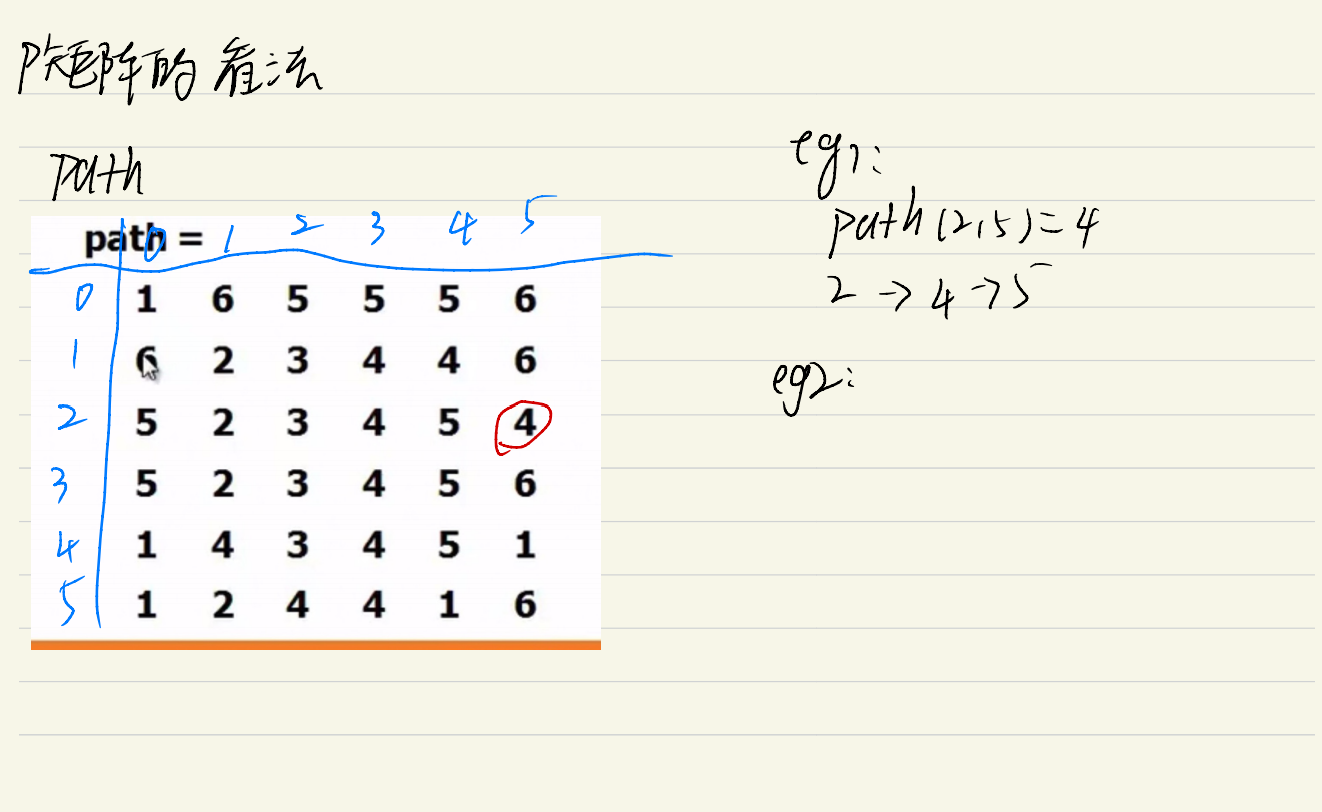 P矩阵的看法
path
path =
0 1 2 3 4 5
0 1 6 5 5 5 6
1 6 2 3 4 4 6
2 5 2 3 4 5 4
3 5 2 3 4 5 6
4 1 4 3 4 5 1
5 1 2 4 4 1 6
eg1:
path(2,5)=4
2 → 4 → 5
eg2: